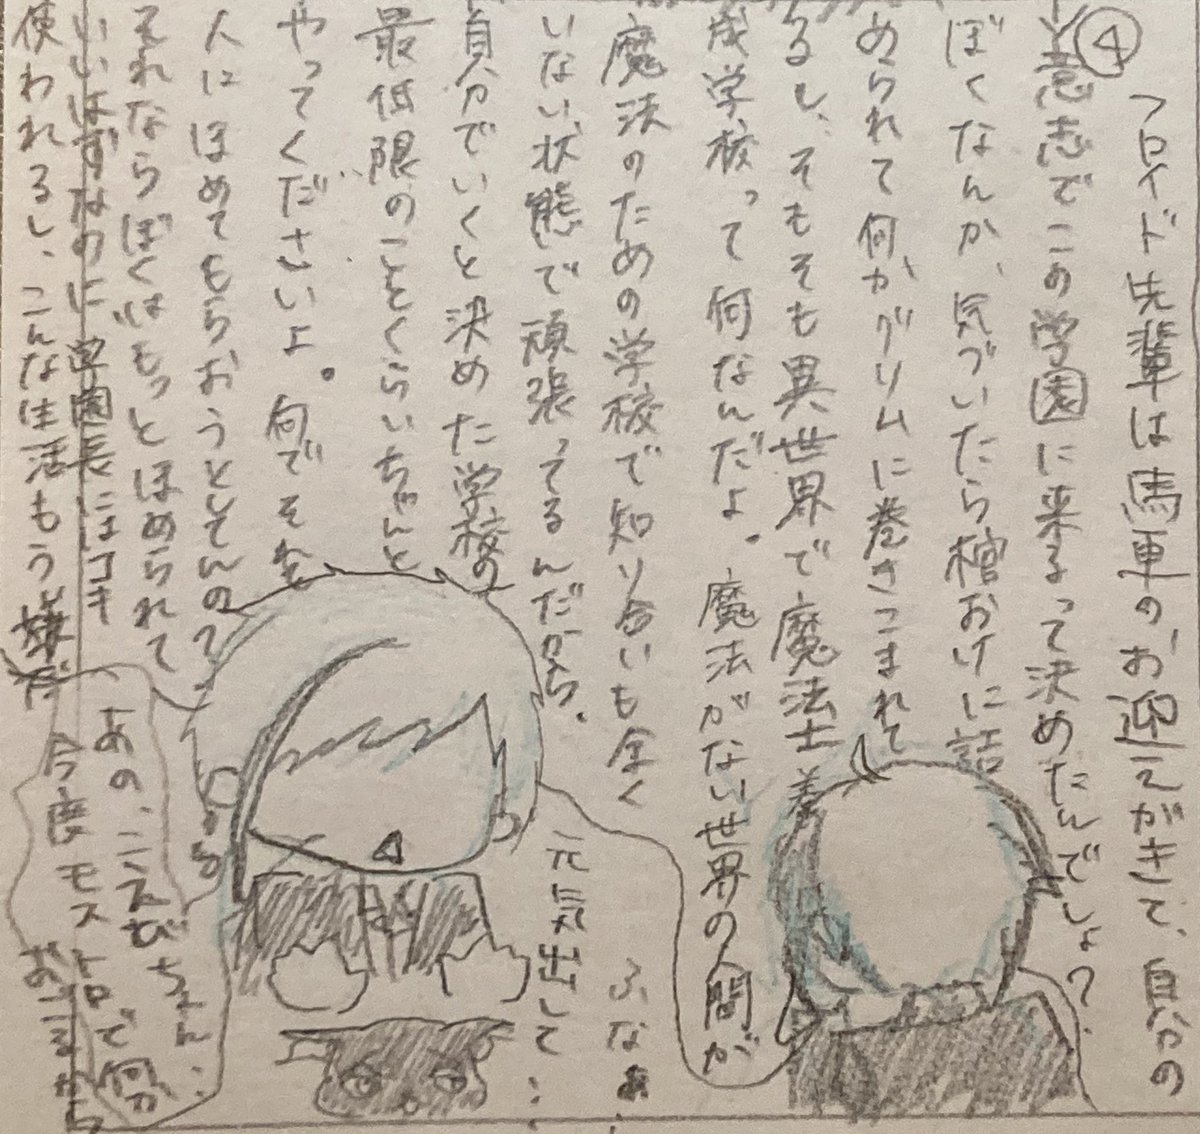 ④
フロイド先輩は馬車のお迎えがきて、自分の
意志でこの学園に来るって決めたんでしょ?
ぼくなんか、気づいたら棺おけに詰
められて何かグリムに巻きこまれて
るし、そもそも異世界で魔法士養
成学校って何なんだよ。魔法がない世界の人間が
魔法のための学校で知り合いも全く
いない状態で頑張ってるんだから、
自分でいくと決めた学校の
最低限のことくらいちゃんと
やってくださいよ。何でそれを
人にほめてもらおうとしてんの?
それならぼくはもっとほめられて
いいはずなのに学園長にはコキ
使われるし、こんな生活もう嫌だ
ふなぁ…
元気出して…
あの、こえびちゃん…
今度モストロで何か
おごるから